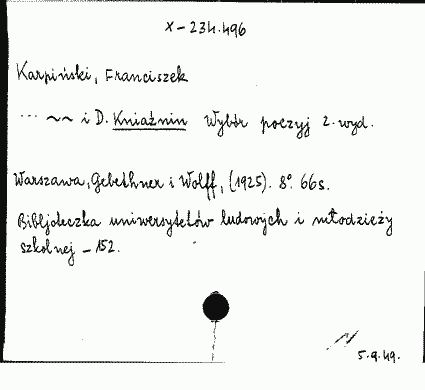 X-234.496
Karpiński, Franciszek
... ~~ i D. Kniaźnin Wybór poezyj 2. wyd.
Warszawa, Gebethner i Wolff, (1925). 8°. 66s.
Bibljoteczka uniwersytetów ludowych i młodzieży
szkolnej - 152.
5.9.49.